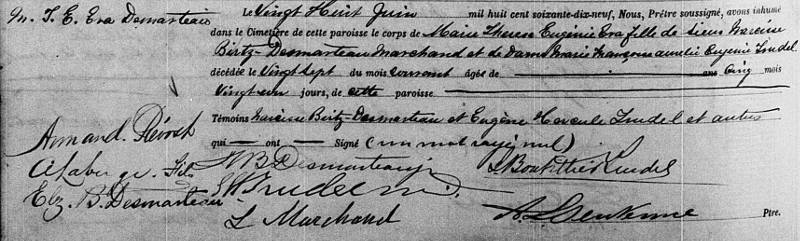 M. T. E. Eva Desmarteau
Le Vingt Huit Juin mil huit cent soixante-dix-neuf, Nous, Prêtre soussigné, avons inhumé
dans le Cimetière de cette paroisse le corps de Marie Therese Eugénie Eva fille de sieur Narcisse
Birtz-Desmarteau Marchand et de Dame Marie Françoise Aurélie Eugénie Trudel
décédée le Vingt sept du mois courant âgée de ans Cinq mois
Vingt un jours, de cette paroisse
Témoins Narcisse Birtz-Desmarteau et Eugène Hercule Trudel et autres
qui ont Signé (un mot rayé nul)
Armand
N B Desmarteau
Trudel
Elz. B. Desmarteau
L Marchand
Ptre.